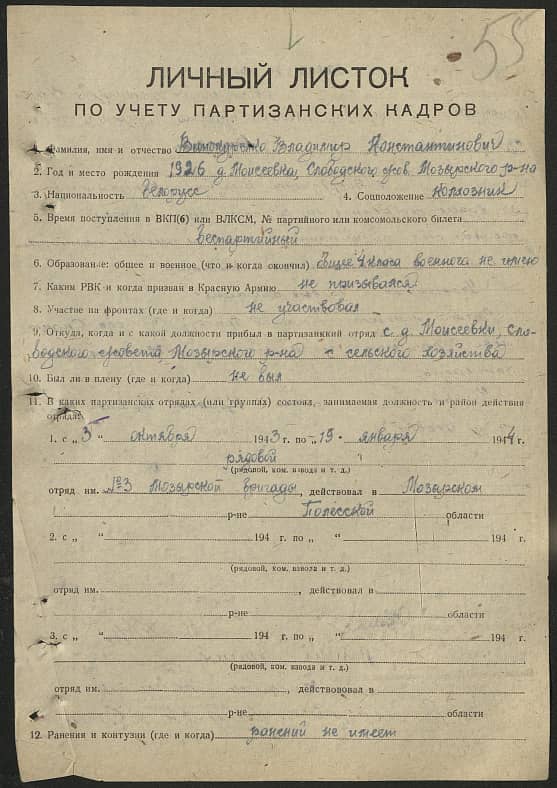 55
ЛИЧНЫЙ ЛИСТОК
ПО УЧЕТУ ПАРТИЗАНСКИХ КАДРОВ
1. Фамилия, имя и отчество Владимир Константинович
2. Год и место рождения 1926 д. Моисеевка, Слободского с/сов. Мозырского р-на
3. Национальность белорусс 4. Соцположение колхозник
5. Время поступления в ВКП(б) или ВЛКСМ, № партийного или комсомольского билета
беспартийный
6. Образование: общее и военное (что и когда окончил) общее 4 класа военного не имею
7. Каким РВК и когда призван в Красную Армию не призывался
8. Участие на фронтах (где и когда) не участвовал
9. Откуда, когда и с какой должности прибыл в партизанский отряд с д. Моисеевки, Сло-
бодского с/совета Мозырского р-на с сельского хозяйства
10. Был ли в плену (где и когда) не был
11. В каких партизанских отрядах (или группах) состоял, занимаемая должность и район действия
отряда:
1. с „ 5 " октября 1943 г. по „ 15 " января 1944 г.
рядовой
(рядовой, ком. взвода и т. д.)
отряд им. №3 Мозырской бригады, действовал в Мозырском
р-не Полесской области
2. с „ " 194 г. по „ " 194 г.
(рядовой, ком. взвода и т. д.)
отряд им. , действовал в
р-не области
3. с „ " 194 г. по „ " 194 г.
(рядовой, ком. взвода и т. д.)
отряд им. , действовал в
р-не области
12. Ранения и контузии (где и когда) ранений не имеет